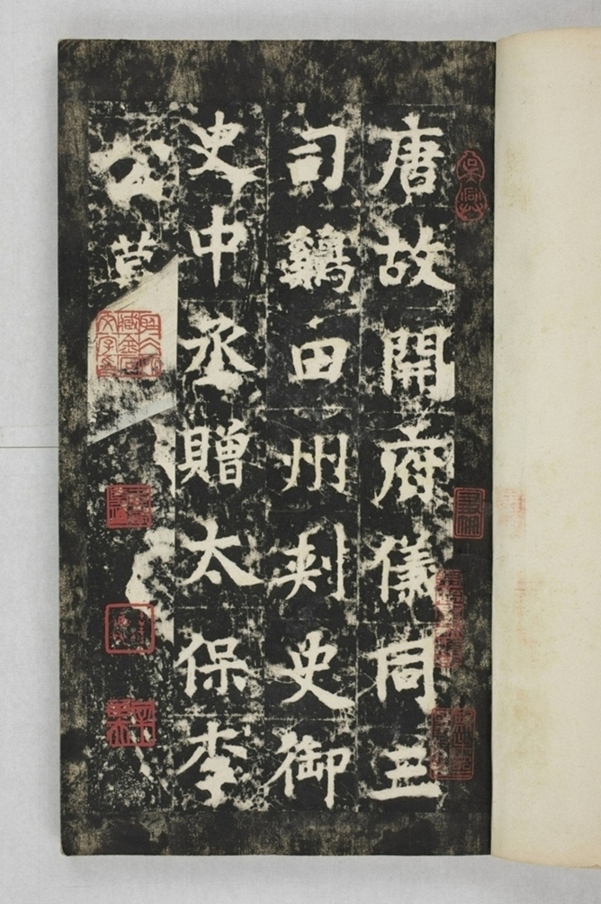 唐故開府儀同三
司鷄田州刺史御
史中丞贈太保李
公墓